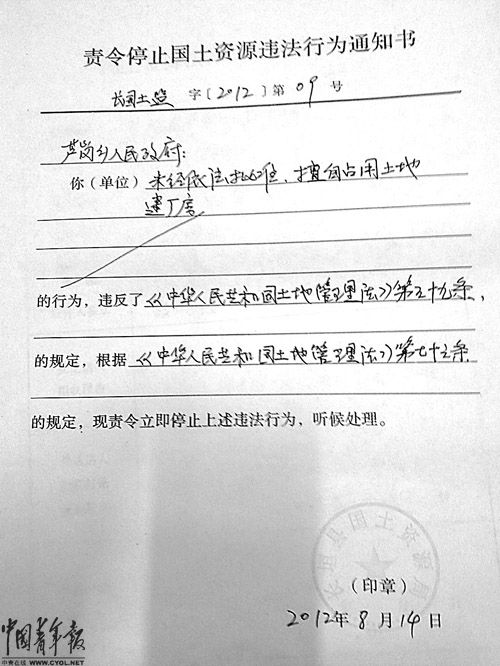 责令停止国土资源违法行为通知书
长国土监 字〔2012〕第 09 号
芦岗乡人民政府:
你（单位）未经依法批准、擅自占用土地
建厂房
的行为，违反了《中华人民共和国土地管理法》第五十九条，
的规定，根据《中华人民共和国土地管理法》第七十三条
的规定，现责令立即停止上述违法行为，听候处理。
长垣县国土资源局
（印章）
2012年 8 月 14 日
中国青年报
中青在线 WWW.CYOL.NET